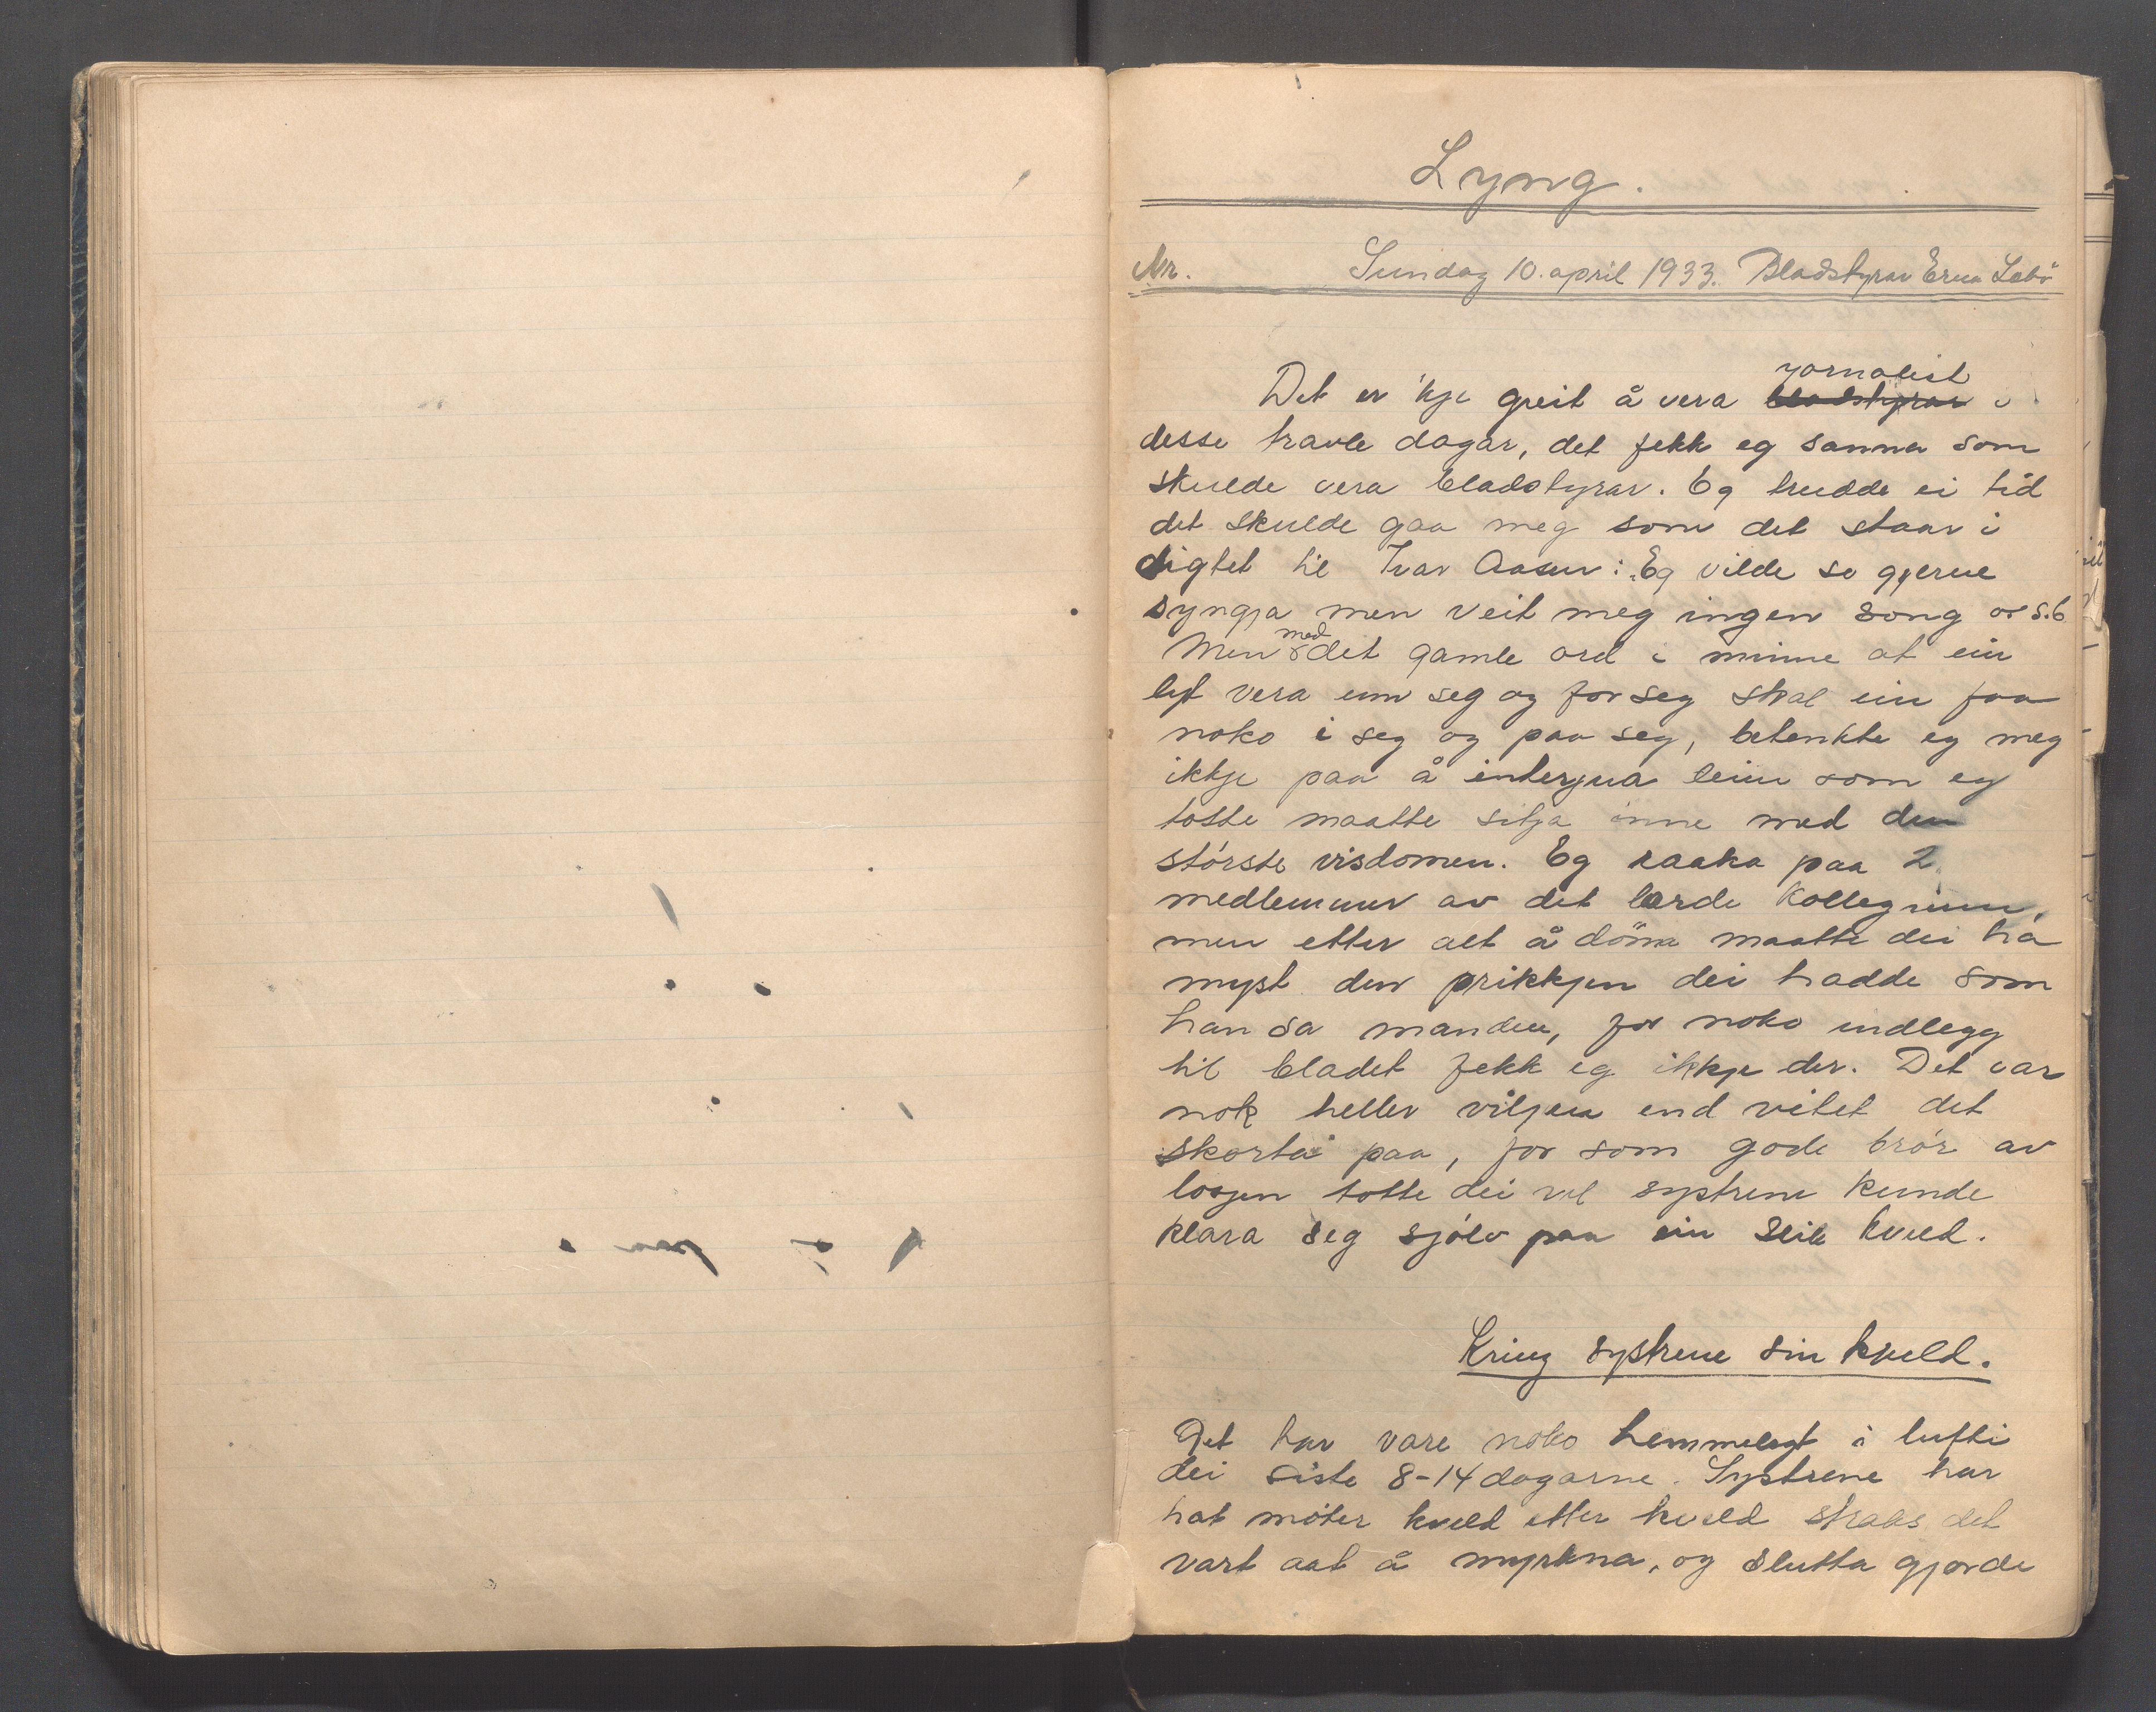 Lyng.
Nr. Sundag 10. april 1933. Bladstyrar Erna Lebö
jornalist
Det er 'kje greit å vera bladstyrar i
desse travle dagar, det fekk eg sanna som
skulde vera bladstyrar. Eg trudde ei tid
det skulde gaa meg som det staar i
digtet til Ivar Aasen: "Eg vilde so gjerne
syngja men veit meg ingen song os.b
Men med det gamle ord i minne at ein
lyt vera um seg og for seg skal ein faa
noko i seg og paa seg, betenkte eg meg
ikkje paa å interjua deim som eg
totte maatte sitja inne med den
störste visdomen. Eg raaka paa 2
medlemmer av det lærde kollegium,
men etter alt å döma maatte dei ha
myst den prikkjen dei hadde som
han sa manden, for noko indlegg
til bladet fekk eg ikkje der. Det var
nok heller viljen end vitet det
skorta paa, for som gode brör av
losjen totte dei vel systrene kunde
klara seg sjölv paa ein slik kveld.
Kring systrene sin kveld.
Det har vore noko hemmelegt i lufti
dei siste 8-14 dagarne. Systrene har
hat möter kveld etter kveld straks det
vart aat å myrkna, og slutta gjorde